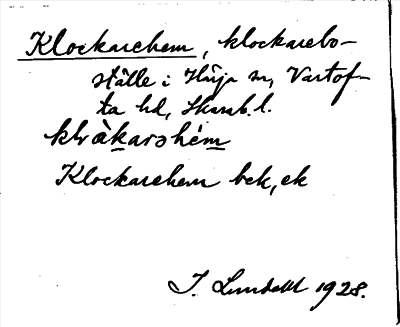 Klockarehem, klockarebo-
ställe i Höja sn, Vartof-
ta hd, Skarab. l.
klòkarshém
Klockarehem bek, ek
J. Lundahl 1928.